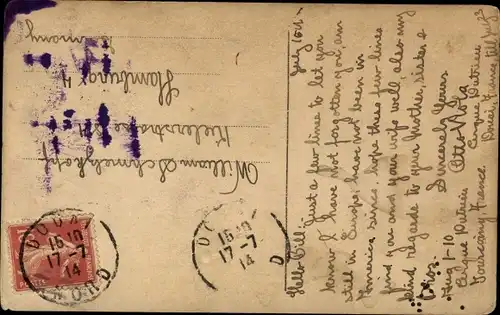 July 16th
Hello Bill:
Just a few lines to let you
know I have not forgotten you, am
still in Europe, have not been in
America since, hope these few lines
find you and your wife well also my
kind regards to your Mother, sister &
Sincerely Yours
Otto
Aug 1-10
Cirque
France.
Cirque
Douai France till July 23
William Schmelzkopf
Kielerstrasse
Hamburg 4
Germany
DOUAI
15 10
17-7
14
NORD
D
15 10
17-7
14
D